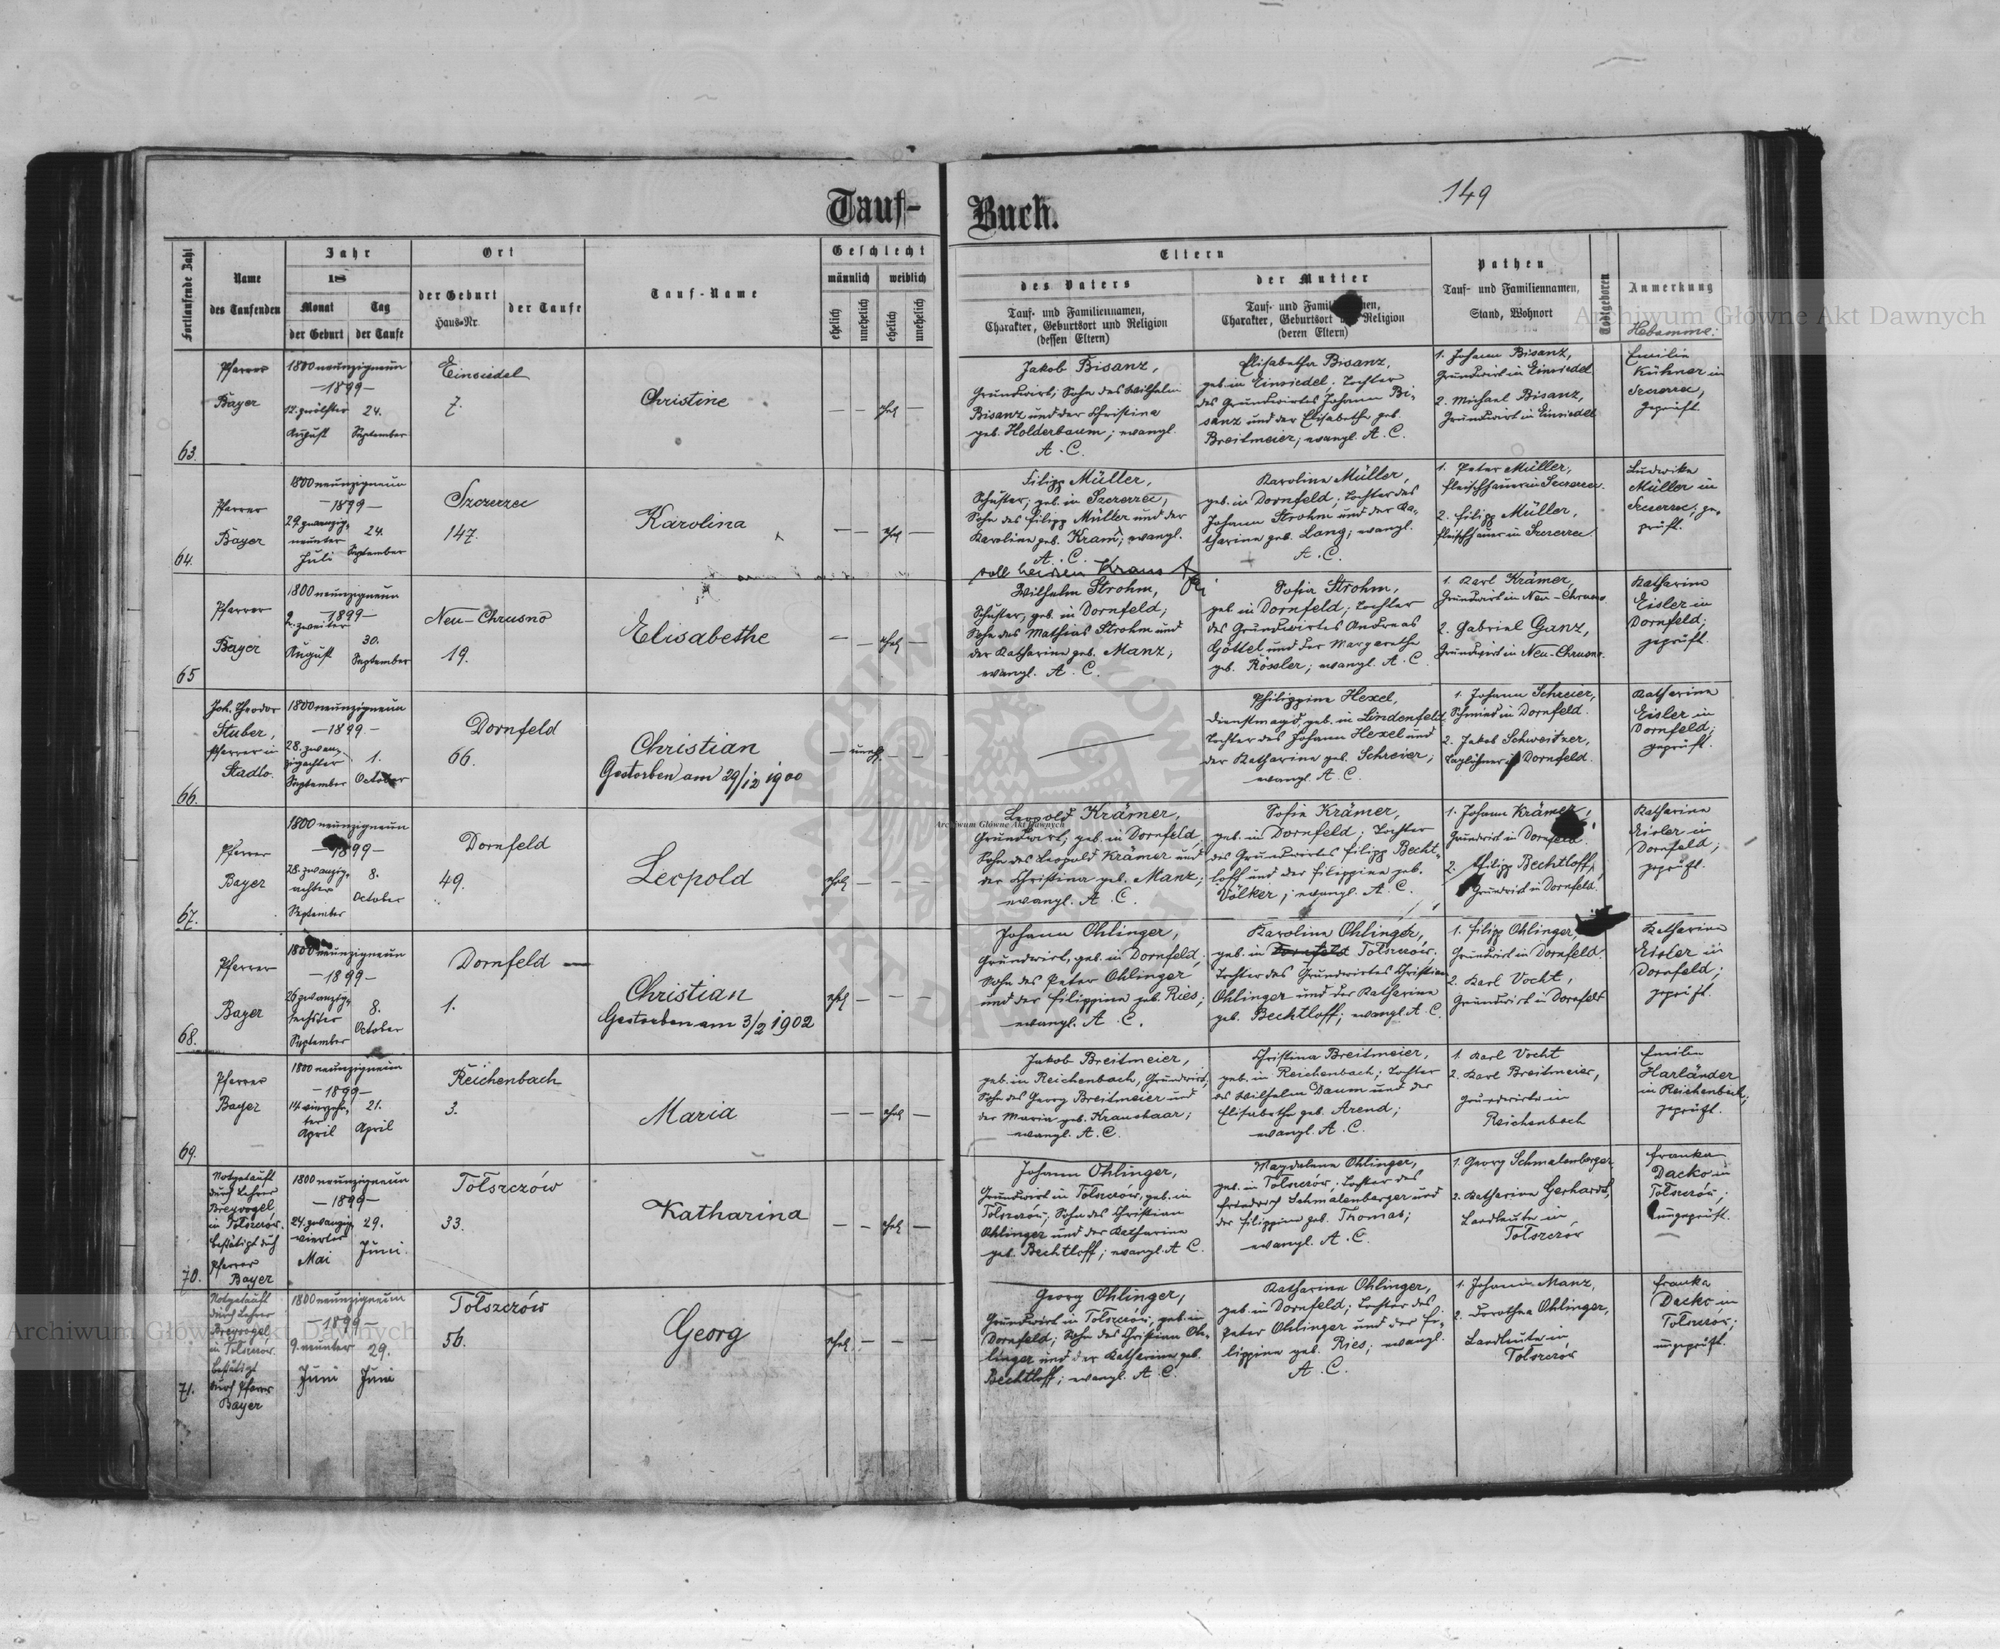 149
Tauf- Buch.
Fortlaufende Zahl
Name
des Taufenden
Jahr
18
Monat
der Geburt
Tag
der Taufe
Ort
der Geburt
Haus-Nr.
der Taufe
Tauf-Name
Geschlecht
männlich
weiblich
ehelich
unehelich
ehelich
unehelich
Eltern
des Vaters
Tauf- und Familiennamen,
Charakter, Geburtsort und Religion
(dessen Eltern)
der Mutter
Tauf- und
Charakter, Geburtsort Religion
(deren Eltern)
Pathen
Tauf- und Familiennamen,
Stand, Wohnort
Todtgeboren
Anmerkung
Hebamme:
63.
Pfarrer
Bayer
1800 neunzigneun
-1899-
12. zwölfter
August
24.
September
Einsiedel
7.
Christine
— — ehel —
Jakob Bisanz,
Grundwirt, Sohn des Wilhelm
Bisanz und der Christina
geb. Holderbaum; evangl.
A. C.
Elisabetha Bisanz,
geb. in Einsiedel; Tochter
des Grundwirtes Johann Bi-
sanz und der Elisabeth geb.
Breitmeier; evangl. A. C.
1. Johann Bisanz,
Grundwirt in Einsiedel
2. Michael Bisanz,
Grundwirt in Einsiedel
Emilie
Kühner in
geprüft.
64.
Pfarrer
Bayer
1800 neunzigneun
-1899-
29. zwanzig-
neunter
Juli
24.
September
Szczerzec
147.
Karolina
— — ehel —
Filipp Müller,
Schuster, geb. in Szczerzec,
Sohn des Filipp Müller und der
Karoline geb. Kram; evangl.
A. C.
soll heissen Kraus
Karoline Müller,
geb. in Dornfeld; Tochter des
Johann Strohm und der Ka-
tharine geb. Lang; evangl.
A. C.
1. Peter Müller,
Fleischhauer in Szczerzec.
2. Filipp Müller,
Fleischhauer in Szczerzec.
Ludwika
Müller in
Szczerzec; ge-
prüft.
65
Pfarrer
Bayer
1800 neunzigneun
-1899-
2. zweiter
August
30.
September
Neu-Chrusno
19.
Elisabethe
— — ehel —
Wilhelm Strohm,
Schuster, geb. in Dornfeld;
Sohn des Mathias Strohm und
der Katharine geb. Manz;
evangl. A. C.
Sofia Strohm,
geb. in Dornfeld; Tochter
des Grundwirtes Andreas
Göttel und der Margarethe
geb. Rössler; evangl. A. C.
1. Karl Krämer,
Grundwirt in Neu-Chrusno
2. Gabriel Ganz,
Grundwirt in Neu-Chrusno.
Katharine
Eisler in
Dornfeld;
geprüft.
66.
Joh. Theodor
Stuber,
Pfarrer in
Stadlo.
1800 neunzigneun
-1899-
28. zwan-
zigachter
September
1.
October
Dornfeld
66.
Christian
Gestorben am 29/12 1900
— uneh. — —
Philippine Hexel,
Dienstmagd, geb. in Lindenfeld,
Tochter des Johann Hexel und
der Katharine geb. Schreier;
evangl. A. C.
1. Johann Schreier,
Schmied in Dornfeld.
2. Jakob Schweitzer,
Taglöhner in Dornfeld.
Katharine
Eisler in
Dornfeld;
geprüft.
67.
Pfarrer
Bayer
1800 neunzigneun
-1899-
28. zwanzig-
achter
September
8.
October
Dornfeld
49.
Leopold
ehel — — —
Leopold Krämer,
Grundwirt, geb. in Dornfeld,
Sohn des Leopold Krämer und
der Christina geb. Manz;
evangl. A. C.
Sofie Krämer,
geb. in Dornfeld; Tochter
des Grundwirtes Filipp Becht-
loff und der Filippine geb.
Völker; evangl. A. C.
1. Johann Krämer,
Grundwirt in Dornfeld.
2. Philipp Bechtloff,
Grundwirt in Dornfeld.
Katharine
Eisler in
Dornfeld;
geprüft.
68.
Pfarrer
Bayer
1800 neunzigneun
-1899-
26. zwanzig-
sechster
September
8.
October
Dornfeld —
1.
Christian
Gestorben am 3/2 1902
ehel — — —
Johann Ohlinger,
Grundwirt, geb. in Dornfeld,
Sohn des Peter Ohlinger
und der Filippine geb. Ries;
evangl. A. C.
Karoline Ohlinger,
geb. in Dornfeld Tolszczów,
Tochter des Grundwirtes Christian
Ohlinger und der Katharine
geb. Bechtloff; evangl. A. C.
1. Filipp Ohlinger
Grundwirt in Dornfeld.
2. Karl Vocht,
Grundwirt in Dornfeld
Katharine
Eisler in
Dornfeld;
geprüft.
69.
Pfarrer
Bayer
1800 neunzigneun
-1899-
14. vierzehn-
ter
April
21.
April
Reichenbach
3.
Maria
— — ehel —
Jakob Breitmeier,
geb. in Reichenbach, Grundwirt,
Sohn des Georg Breitmeier und
der Maria geb. Kraushaar;
evangl. A. C.
Christina Breitmeier,
geb. in Reichenbach; Tochter
des Wilhelm Daum und der
Elisabethe geb. Arend;
evangl. A. C.
1. Karl Vocht
2. Karl Breitmeier,
Grundwirte in
Reichenbach
Emilie
Harländer
in Reichenbach;
geprüft.
70.
Notgetauft
durch Lehrer
Breyvogel,
in Tolszczów.
bestätigt durch
Pfarrer
Bayer
1800 neunzigneun
-1899-
24. zwanzig-
vierter
Mai
29.
Juni.
Tolszczów
33.
Katharina
— — ehel —
Johann Ohlinger,
Grundwirt in Tolszczów, geb. in
Tolszczów; Sohn des Christian
Ohlinger und der Katharine
geb. Bechtloff; evangl. A. C.
Magdalene Ohlinger,
geb. in Tolszczów; Tochter des
Friedrich Schmalenberger und
der Filippine geb. Thomas;
evangl. A. C.
1. Georg Schmalenberger,
2. Katharine Gerhardt,
Landleute in
Tolszczów
Franka
Dacko in
Tolszczów;
ungeprüft.
71.
Notgetauft
durch Lehrer
Breyvogel,
in Tolszczów.
bestätigt
durch Pfarrer
Bayer
1800 neunzigneun
-1899-
9. neunter
Juni
29.
Juni
Tolszczów
56.
Georg
ehel — — —
Georg Ohlinger,
Grundwirt in Tolszczów, geb. in
Dornfeld; Sohn des Christian Oh-
linger und der Katharine geb.
Bechtloff; evangl. A. C.
Katharine Ohlinger,
geb. in Dornfeld; Tochter des
Peter Ohlinger und der Fi-
lippine geb. Ries; evangl.
A. C.
1. Johann Manz,
2. Dorothea Ohlinger,
Landleute in
Tolszczów
Franka
Dacko in
Tolszczów;
ungeprüft.
Archiwum Główne Akt Dawnych
Archiwum Główne Akt Dawnych
Archiwum Główne Akt Dawnych